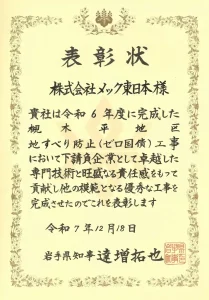 表彰状
株式会社メック東日本様
貴社は令和6年度に完成した
槻木平地区
地すべり防止(ゼロ国債)工事
において下請負企業として卓越した
専門技術と旺盛なる責任感をもって
貢献し他の模範となる優秀な工事を
完成させたのでこれを表彰します
令和7年12月18日
岩手県知事 達増拓也